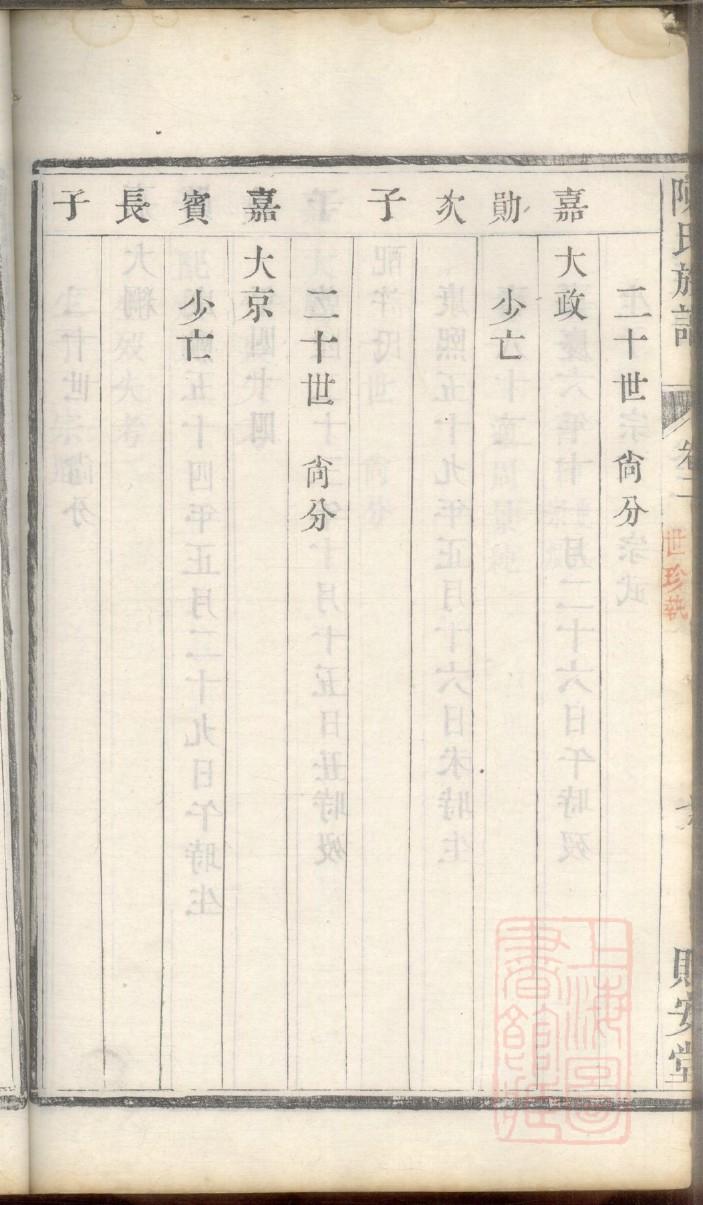 陳氏族譜
卷二
世珍執
貽安堂
二十世尙分
嘉勛次子
大政
少亡
二十世尙分
嘉賓長子
大京
少亡
上海圖書館藏